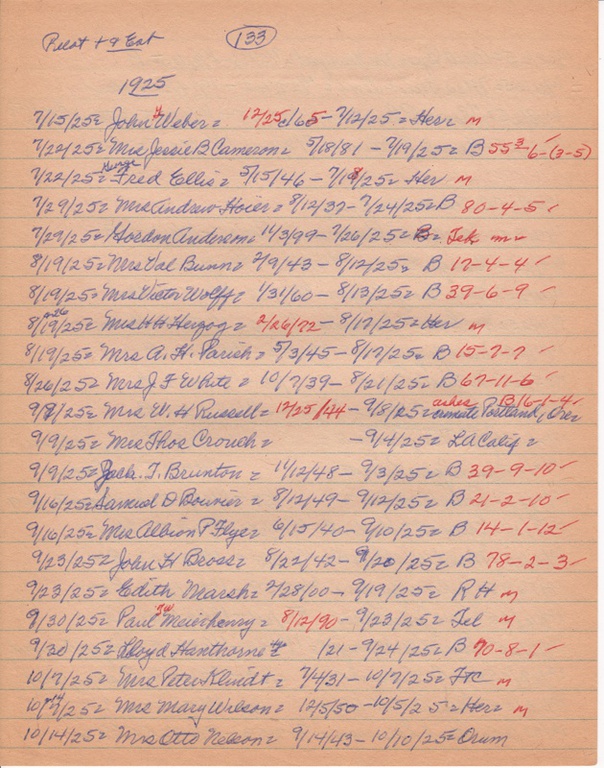 Pilot + 9 Ext (133)
1925
7/15/25= John Weber= 12/25/65- 7/12/25= Her m
7/22/25= Mrs Jessie B Cameron= 5/18/81 - 7/19/25= B 55-6-(3-5)✓
George
7/22/25= Fred Ellis= 5/15/46 - 7/18/25= Her m
7/29/25= Mrs Andrew Hoier= 8/12/37- 7/24/25=B 80-4-5✓
7/29/25= Gordon Anderson= 11/3/99- 7/26/25= B= m
8/19/25= Mrs Val Bunn= 2/9/43- 8/12/25= B 17-4-4✓
8/19/25= Mrs Victor Wolff= 1/31/60- 8/13/25= B 39-6-9✓
8/19/25= Mrs H H Herzog= 2/26/72- 8/17/25=Her m
8/19/25= Mrs A. H. Parish= 5/3/45- 8/17/25= B 15-7-7✓
8/26/25= Mrs J F White= 10/7/39- 8/21/25= B 67-11-6✓
ashes B 16-1-4✓
9/8/25= Mrs W. H Russell= 12/25/44- 9/8/25= Portland, Ore
9/9/25= Mrs Thos Crouch= -9/4/25= LA Calif=
9/9/25= Jack. T. Brunton= 11/12/48- 9/3/25= B 39-9-10✓
9/16/25= Samuel D Bounier= 8/12/49- 9/12/25= B 21-2-10✓
9/16/25= Mrs Albion P Flye= 6/15/40- 9/10/25= B 14-1-12✓
9/23/25= John H Bross= 8/22/42- 9/20/25= B 78-2-3✓
9/23/25= Edith Marsh= 2/28/00- 9/19/25= R H m
9/30/25= Paul Meierhenry= 8/12/90- 9/23/25= Tel m
9/30/25= Lloyd Hawthorne = /21- 9/24/25= B 70-8-1✓
10/7/25= Mrs Peter Klindt= 7/4/31- 10/7/25= Ftc m
10/7/25= Mrs Mary Wilson= 12/5/50-10/5/25= Her= m
10/14/25= Mrs Otto Nelson= 9/14/43- 10/10/25= Drum